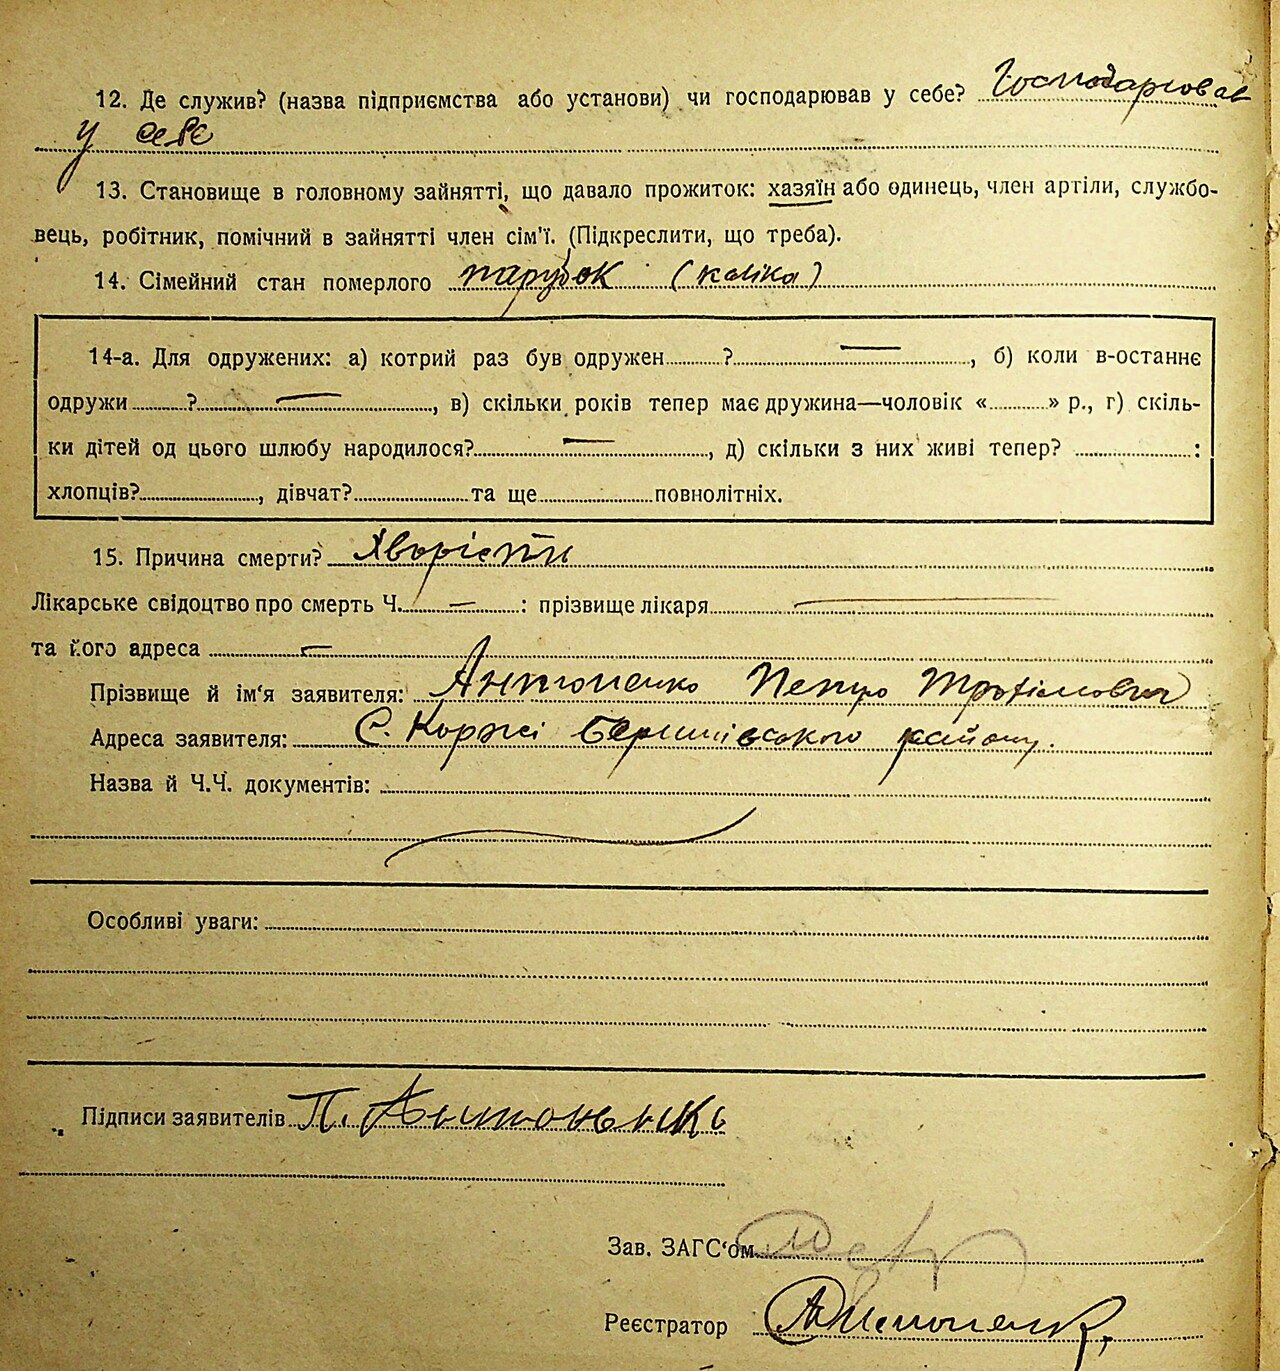 12. Де служив? (назва підприємства або установи) чи господарював у себе? Господарював
у себе
13. Становище в головному зайнятті, що давало прожиток: хазяїн або одинець, член артіли, службо-
вець, робітник, помічний в зайнятті член сім'ї. (Підкреслити, що треба).
14. Сімейний стан померлого парубок (каліка)
14-а. Для одружених: а) котрий раз був одружен ? — , б) коли в-останнє
одружи ? — , в) скільки років тепер має дружина—чоловік « » р., г) скіль-
ки дітей од цього шлюбу народилося? — , д) скільки з них живі тепер? :
хлопців? , дівчат? та ще повнолітніх.
15. Причина смерти? Хворість
Лікарське свідоцтво про смерть Ч. — : прізвище лікаря —
та його адреса —
Прізвище й ім'я заявителя: Антоненко Петро Трохимович
Адреса заявителя: с. Коржі Баришівського району.
Назва й Ч.Ч. документів:
Особливі уваги:
Підписи заявителів П. Антоненко
Зав. ЗАГС'ом
Реєстратор